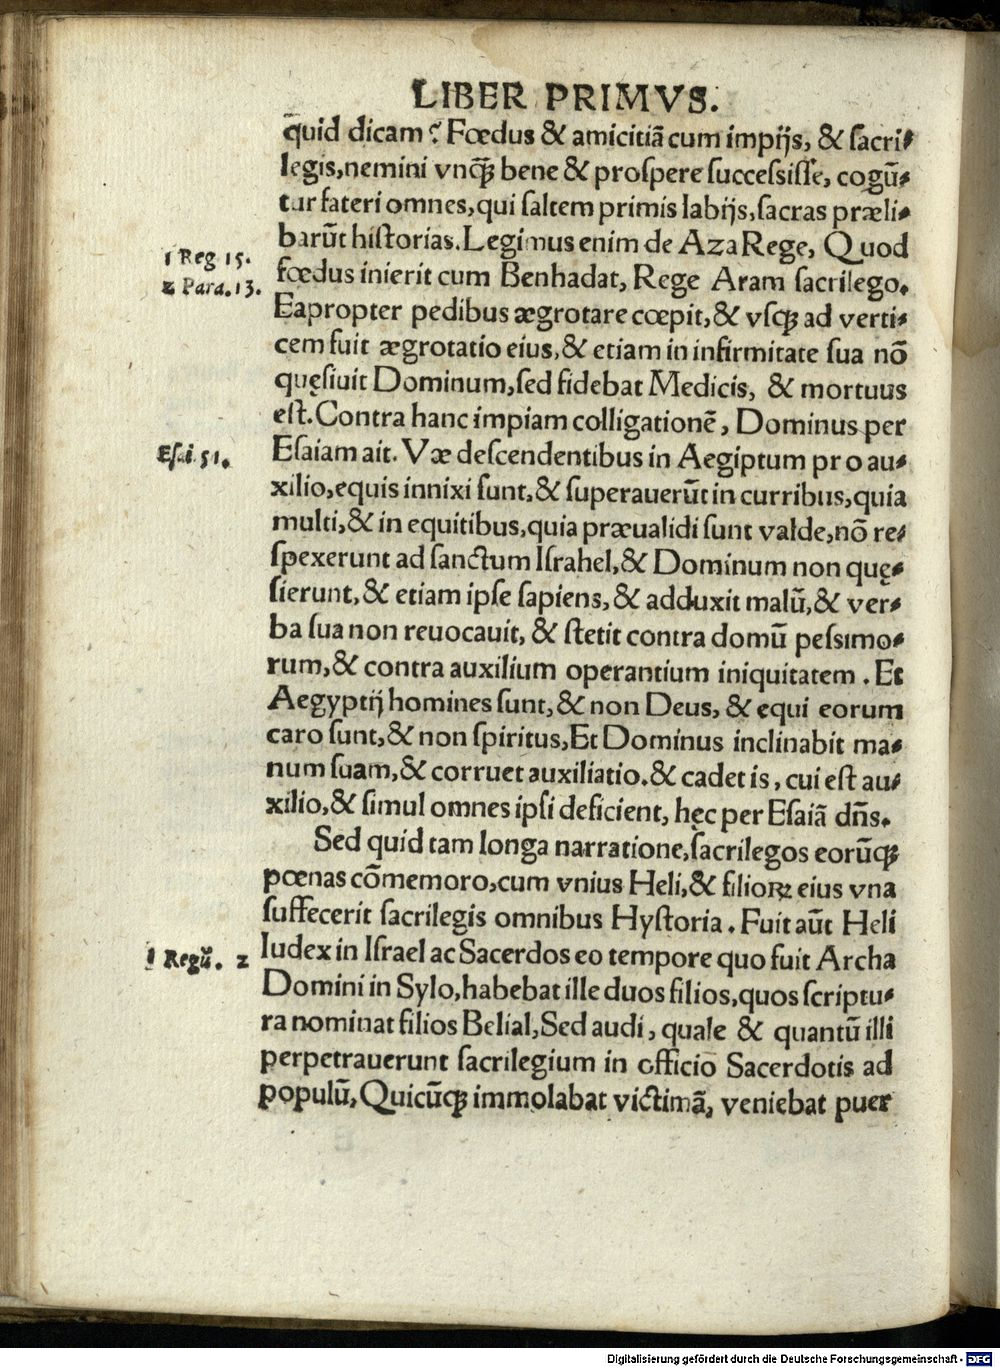 LIBER PRIMVS.
quid dicam? Fœdus & amicitiã cum impijs, & sacri-
legis, nemini vnq̃ȝ bene & prospere successisse, cogũ-
tur fateri omnes, qui saltem primis labijs, sacras præli-
barũt historias. Legimus enim de Aza Rege, Quod
1 Reg 15.
fœdus inierit cum Benhadat, Rege Aram sacrilego.
2 Para. 13.
Eapropter pedibus ægrotare cœpit, & vsqȝ ad verti-
cem fuit ægrotatio eius, & etiam in infirmitate sua nõ
quęsiuit Dominum, sed fidebat Medicis, & mortuus
est. Contra hanc impiam colligationẽ, Dominus per
Esai. 51.
Esaiam ait. Væ descendentibus in Aegiptum pro au-
xilio, equis innixi sunt, & superauerũt in curribus, quia
multi, & in equitibus, quia præualidi sunt valde, nõ re-
spexerunt ad sanctum Israhel, & Dominum non quę-
sierunt, & etiam ipse sapiens, & adduxit malũ, & ver-
ba sua non reuocauit, & stetit contra domũ pessimo-
rum, & contra auxilium operantium iniquitatem. Et
Aegyptij homines sunt, & non Deus, & equi eorum
caro sunt, & non spiritus, Et Dominus inclinabit ma-
num suam, & corruet auxiliatio. & cadet is, cui est au-
xilio, & simul omnes ipsi deficient, hęc per Esaiã dñs.
Sed quid tam longa narratione, sacrilegos eorũqȝ
pœnas cõmemoro, cum vnius Heli, & filioꝝ eius vna
suffecerit sacrilegis omnibus Hystoria. Fuit aũt Heli
1 Regũ. 2
Iudex in Israel ac Sacerdos eo tempore quo fuit Archa
Domini in Sylo, habebat ille duos filios, quos scriptu-
ra nominat filios Belial, Sed audi, quale & quantũ illi
perpetrauerunt sacrilegium in officio Sacerdotis ad
populũ, Quicũqȝ immolabat victimã, veniebat puer
Digitalisierung gefördert durch die Deutsche Forschungsgemeinschaft - DFG